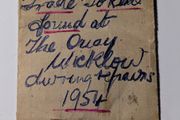 Trade Token
found at
The Quay
Wicklow
during repairs
1954